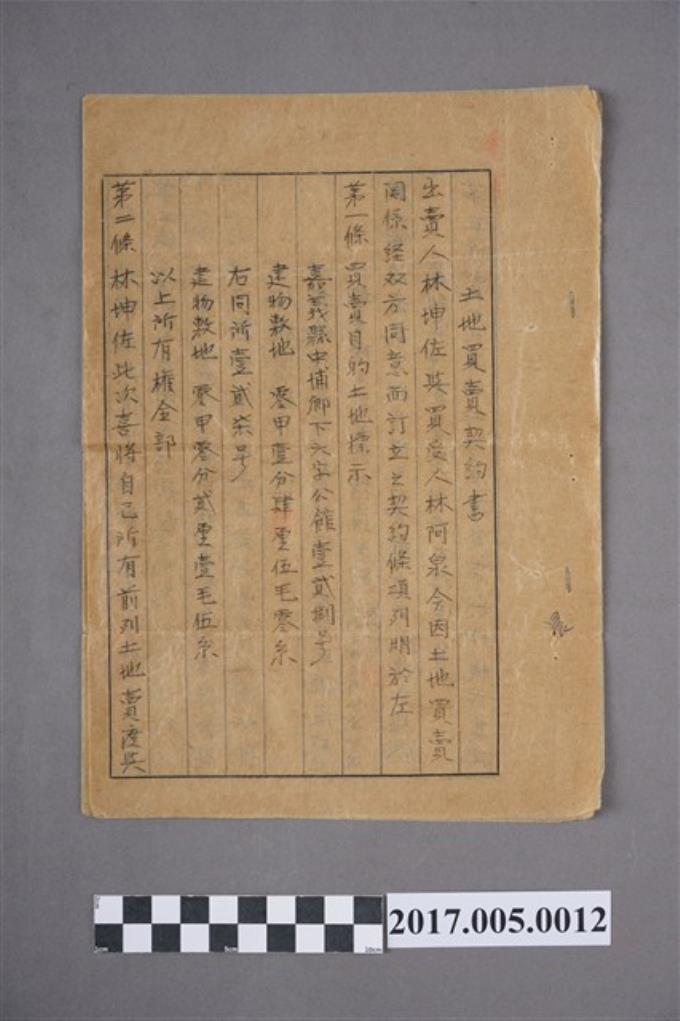 土地買賣契約書
出賣人林坤佐與買受人林阿泉今因土地買賣
関係経双方同意而訂立之契約條項列明於左
第一條 買賣目的土地標示
嘉義縣中埔鄉下六字公館壹貳捌号
建物敷地 零甲壹分肆厘伍毛零糸
右同所壹貳柒号
建物敷地 零甲零分貳厘壹毛伍糸
以上所有權全部
第二條 林坤佐此次喜將自己所有前列土地賣度與
2017.005.0012
1cm
5cm
10cm